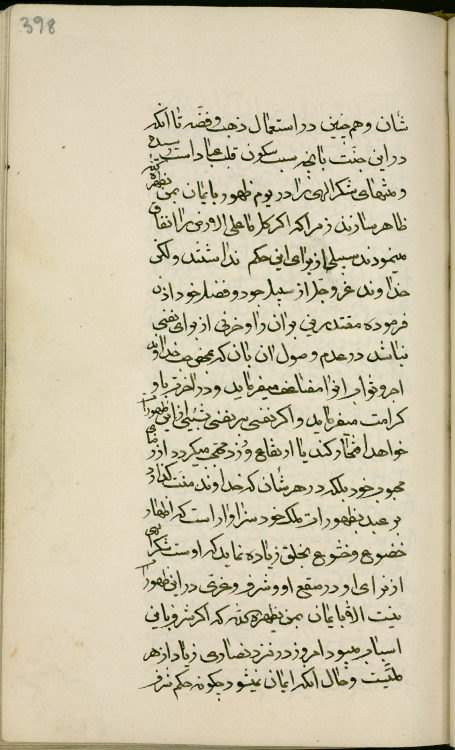 398
شان و هم چنین در استعمال ذهب و فضه تا آنکه
در این جنت بآنچه سبب سکون قلب عباد است رسیده
و منتهای شکر الهی را در یوم ظهور بایمان بمن یظهره الله
ظاهر سازند زیرا که اگر کل ما علی الارض را انفاق
مینمودند سبیلی از برای این حکم نداشتند ولکن
خداوند عز و جل از سبیل جود و فضل خود اذن
فرموده مقتدرین بر آن را و حزنی از برای نفسی
نباشد در عدم وصول آن بآن که مخفی خداوند
اجر و ثواب او را مضاعف میفرماید و در آخرت باو
کرامت میفرماید و اگر نفسی بر نفسی بشیئی از این ظهورات
خواهد افتخار کند یا ارتفاع ورزد محتجب میگردد از رضای
محبوب خود بلکه در هر شأن که خداوند منت گذارد
بر عبد بظهورات ملک خود سزاوار است که اظهار
خضوع و خشوع بخلق زیاده نماید که اوست شکر الهی
از برای او در صقع او و شرف و عزی در این ظهورات
نیست الا بایمان بمن یظهره الله که اگر شرف باین
اسباب میبود امروز در نزد نصاری زیاد از هر
ملتیست و حال آنکه ایمان نمیشود چگونه حکم شرف